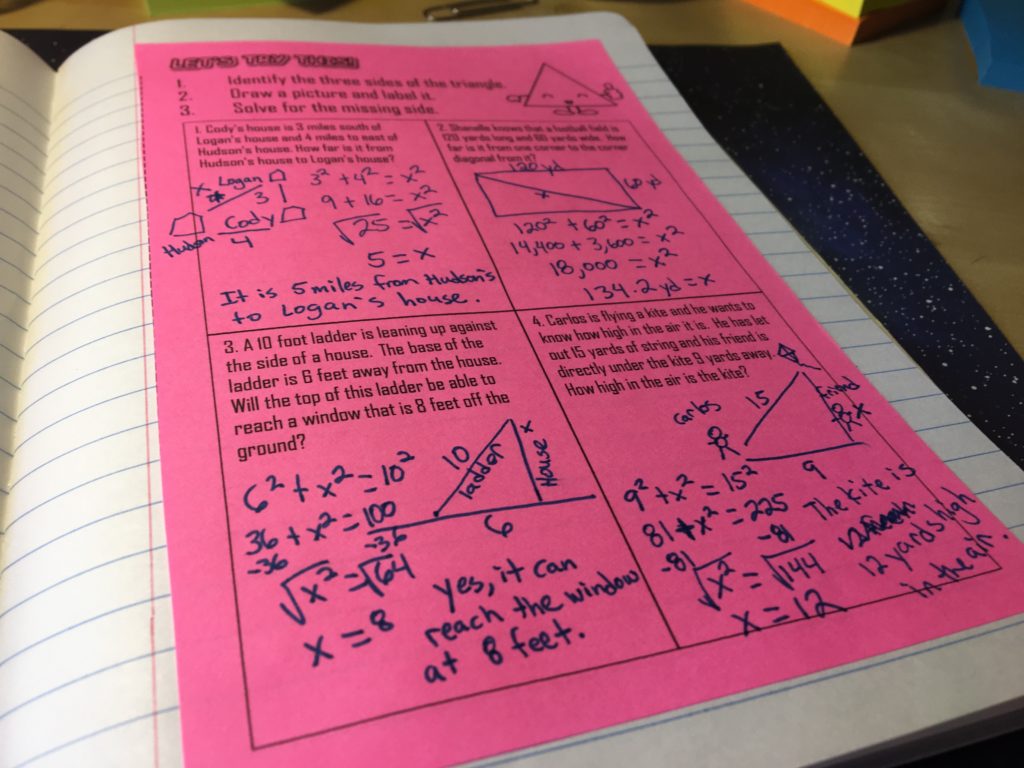 LET'S TRY THESE!
1. Identify the three sides of the triangle.
2. Draw a picture and label it.
3. Solve for the missing side.
1. Cody's house is 3 miles south of
Logan's house and 4 miles to east of
Hudson's house. How far is it from
Hudson's house to Logan's house?
Logan
x
3
Cody
4
3² + 4² = x²
9 + 16 = x²
√25 = √x²
5 = x
It is 5 miles from Hudson's
to Logan's house.
2. Shanelle knows that a football field is
120 yards long and 60 yards wide. How
far is it from one corner to the corner
diagonal from it?
120 yd
60 yd
x
120² + 60² = x²
14,400 + 3,600 = x²
18,000 = x²
134.2 yd = x
3. A 10 foot ladder is leaning up against
the side of a house. The base of the
ladder is 6 feet away from the house.
Will the top of this ladder be able to
reach a window that is 8 feet off the
ground?
10
ladder
House
x
6
6² + x² = 10²
36 + x² = 100
-36 -36
√x² = √64
x = 8
yes, it can
reach the window
at 8 feet.
4. Carlos is flying a kite and he wants to
know how high in the air it is. He has let
out 15 yards of string and his friend is
directly under the kite 9 yards away.
How high in the air is the kite?
Carlos
15
friend
x
9
9² + x² = 15²
81 + x² = 225
-81 -81
√x² = √144
x = 12
The kite is
12 yards high
in the air.